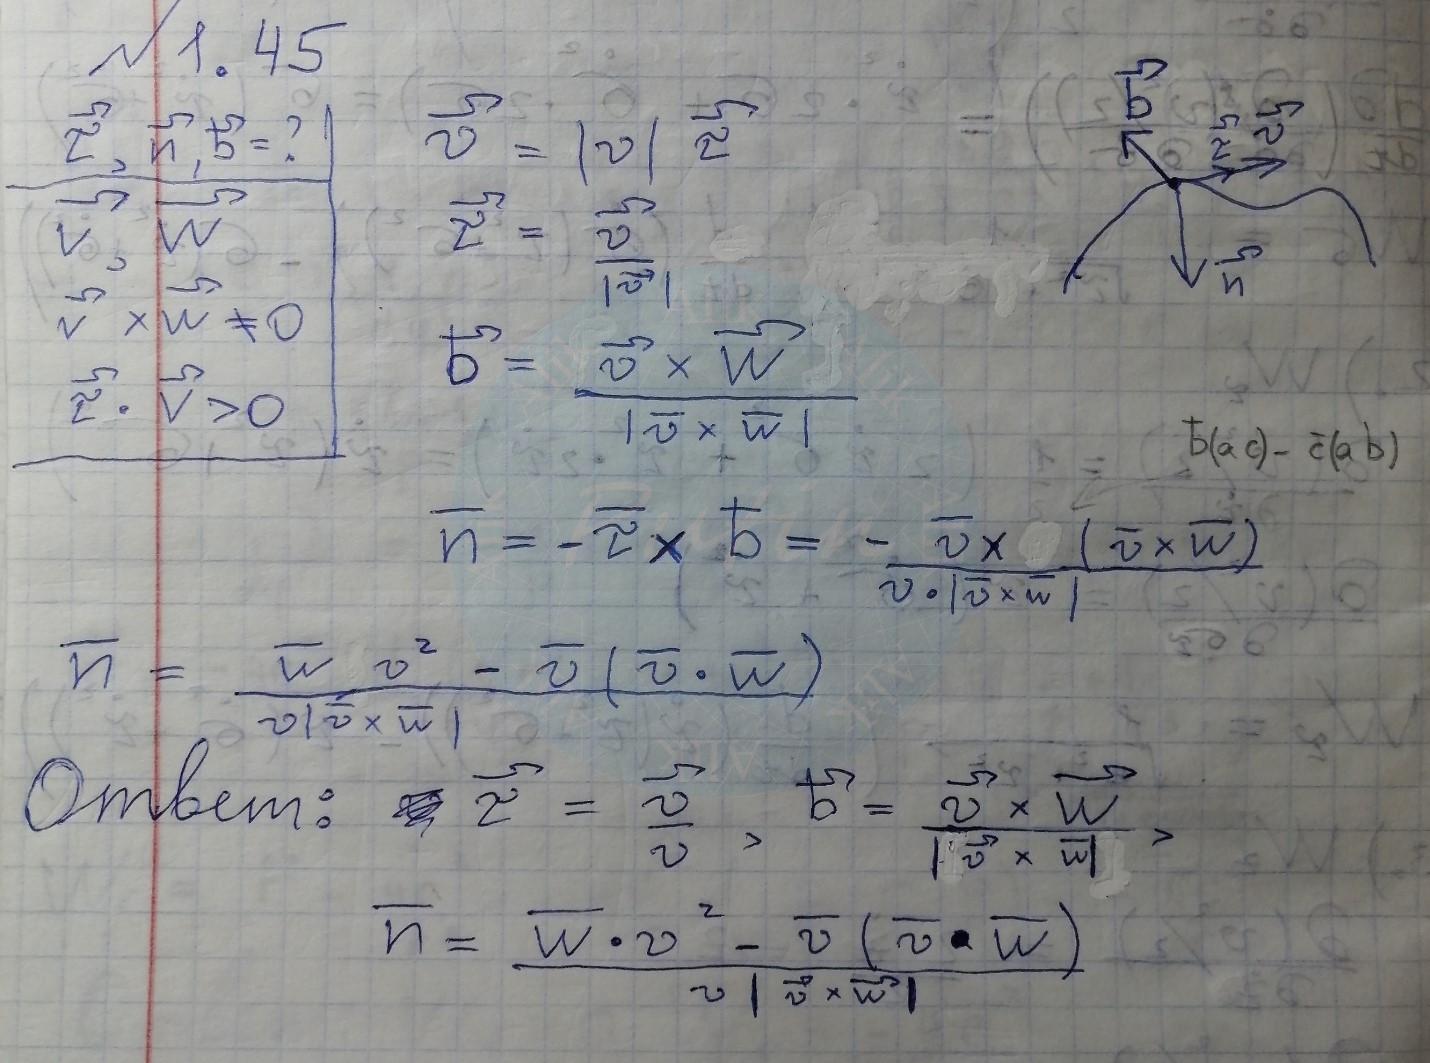 № 1.45
τ⃗, n⃗, b⃗ = ?
v⃗, w⃗
v⃗ × w⃗ ≠ 0
τ⃗ · v⃗ > 0
v⃗ = |v| τ⃗
τ⃗ = v⃗ / |v⃗|
b⃗ = (v⃗ × w⃗) / |v̄ × w̄|
b⃗ τ⃗ v⃗
n⃗
b̄(ac) - c̄(ab)
n̄ = - τ̄ × b̄ = - (v̄ × (v̄ × w̄)) / (v · |v̄ × w̄|)
n̄ = (w̄ v² - v̄ (v̄ · w̄)) / (v |v̄ × w̄|)
Ответ: τ⃗ = v⃗ / v, b⃗ = (v⃗ × w⃗) / |v⃗ × w̄|,
n̄ = (w̄ · v² - v̄ (v̄ · w̄)) / (v |v⃗ × w⃗|)